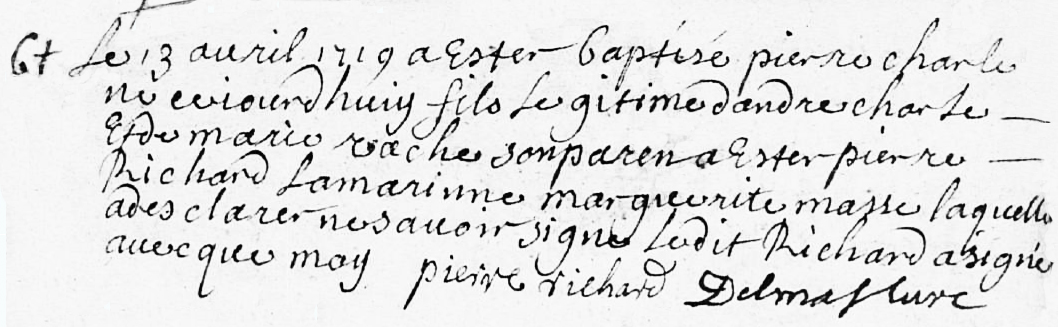 6t Le 13 auvril 1719 a Ester Baptésé pierre charle
né ceiourdhuiy fils Legitime dandre charle
Et de marie vache sonparen a Ester pierre
Richard Lamarinne marguerite masse laquelle
adesclarer nesavoir signe Ledit Richard asigné
avecque moy pierre richard Delmas Cure